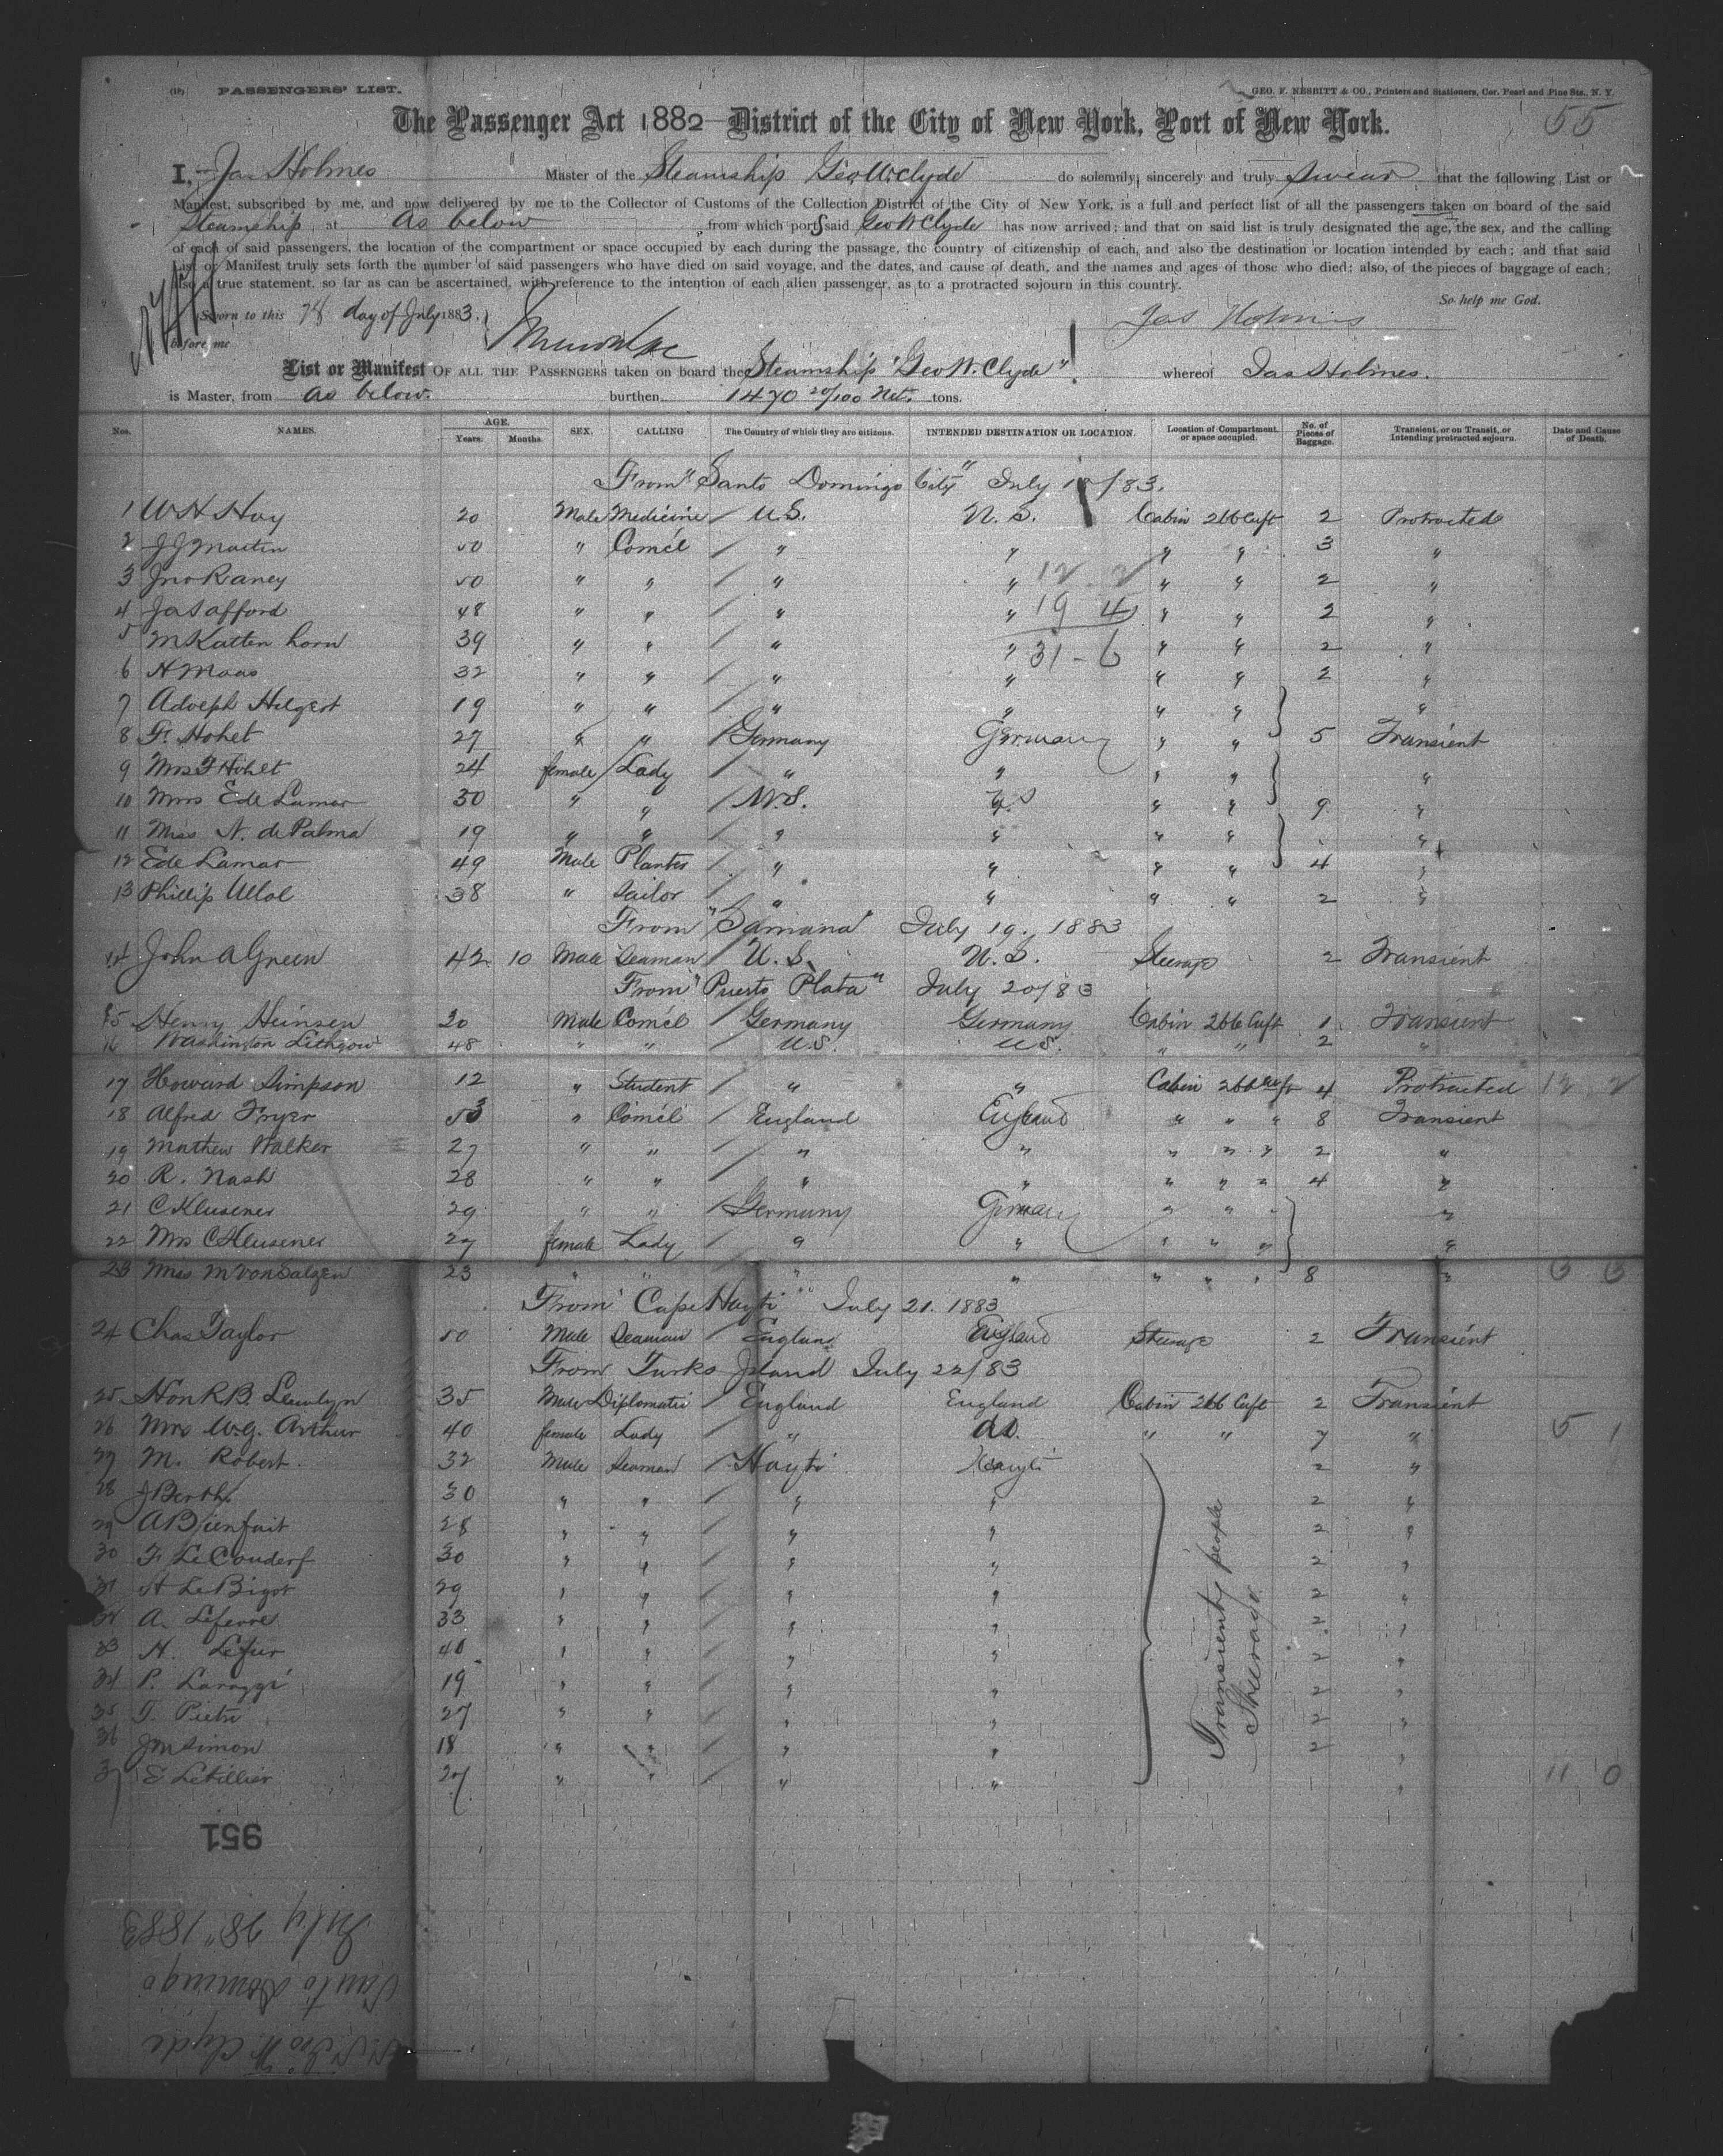 (18) PASSENGERS' LIST. GEO. F. NESBITT & CO., Printers and Stationers, Cor. Pearl and Pine Sts., N. Y.
The Passenger Act 1882 District of the City of New York, Port of New York. 55
I, Jas Holmes Master of the Steamship Geo. W. Clyde do solemnly, sincerely and truly swear that the following List or
Manifest, subscribed by me, and now delivered by me to the Collector of Customs of the Collection District of the City of New York, is a full and perfect list of all the passengers taken on board of the said
Steamship at As below from which ports said Geo W Clyde has now arrived; and that on said list is truly designated the age, the sex, and the calling
of each of said passengers, the location of the compartment or space occupied by each during the passage, the country of citizenship of each, and also the destination or location intended by each; and that said
List or Manifest truly sets forth the number of said passengers who have died on said voyage, and the dates, and cause of death, and the names and ages of those who died; also, of the pieces of baggage of each;
also a true statement, so far as can be ascertained, with reference to the intention of each alien passenger, as to a protracted sojourn in this country.
So help me God.
Sworn to this 28 day of July 1883. Jas Holmes
before me
List or Manifest OF ALL THE PASSENGERS taken on board the Steamship "Geo W. Clyde" whereof Jas Holmes.
is Master, from as below. burthen 1470 20/100 Net. tons.
Nos. NAMES. AGE. Years. Months. SEX. CALLING The Country of which they are citizens. INTENDED DESTINATION OR LOCATION. Location of Compartment or space occupied. No. of Pieces of Baggage. Transient, or on Transit, or Intending protracted sojourn. Date and Cause of Death.
From "Santo Domingo City" July /83.
1 W H Hoy 20 Male Medicine / U.S. U.S. Cabin 266 Cuft 2 Protracted
2 J J Martin 50 " Comél / " " " " 3 "
3 Jno Raney 50 " " / " " 12 2 " " 2 "
4 Ja Safford 48 " " / " " 19 4 " " 2 "
5 M Katten horn 39 " " / " " 31 - 6 " " 2 "
6 H Maas 32 " " / " " " " 2 "
7 Adolph Hilgert 19 " " / " " " " "
8 F. Hohlt 27 " " / Germany Germany " " 5 Transient
9 Mrs F Hohlt 24 female / Lady / " " " " "
10 Mrs E de Lamar 30 " " / U.S. U.S " " 9 "
11 Miss N. de Palma 19 " " / " " " " "
12 E de Lamar 49 Male Planter / " " " " 4 "
13 Phillip Ullol 38 " Sailor / " " " " 2 "
From "Samana" July 19. 1883
14 John A Green 42 10 Male Seaman / U.S. U.S. Steerage 2 Transient
From "Puerto Plata" July 20/83
15 Henry Heinsen 20 Male Comél / Germany Germany Cabin 266 Cuft 1 Transient
16 Washington Lithgow 48 " " U.S. U.S. " " 2 "
17 Howard Simpson 12 " Student / " " Cabin 266 Cuft 4 Protracted 2
18 Alfred Fryer 53 " Comél England England " " " 8 Transient
19 Mathew Walker 27 " " / " " " " " 2 "
20 R. Nash 28 " " / " " " " " 4 "
21 C Klusener 29 " " / Germany Germany " " "
22 Mrs C Klusener 27 female Lady / " " " " " "
23 Miss M von Salzen 23 " " " " " " " 8 "
From "Cape Hayti" July 21. 1883
24 Chas Taylor 50 Male Seaman / England England Steerage 2 Transient
From Turks Island July 22/83
25 Hon R B. Llewlyn 35 Male Diplomatic / England England Cabin 266 Cuft 2 Transient
26 Mrs W. G. Arthur 40 female Lady / " " " 7 " 5 1
27 M. Robert. 32 Male Seaman / Hayti Hayti 2 "
28 J Berth 30 " " / " " 2 "
29 A Bienfait 28 " " / " " 2 "
30 F. Le Couderf 30 " " / " " 2 "
31 H Le Bigot 29 " " / " " 2 "
A. Lefevre 33 " " / " " 2 "
33 H. Lefur 40 " " / " " 2 "
34 P. Laraggi 19 " " / " " 2 "
35 T. Pietri 27 " " / " " 2 "
36 J M Simon 18 " " / " " 2 "
37 E Letillier 27 " " / " " " 11 0
Transient people
Steerage
951
July 28" 1883
Santo Domingo
S.S. Geo W. Clyde